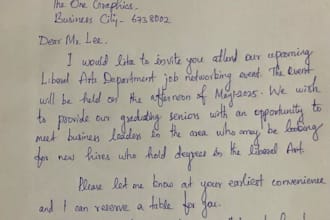 The One Graphics.
Business City - 6738002
Dear Mr. Lee.
I would like to invite you attend our upcoming
Liberal Arts Department job networking event. The Event
will be held on the afternoon of May 1-2025. We wish
to provide our graduating seniors with an opportunity to
meet business leaders in the area who may be looking
for new hires who hold degrees in the liberal Art.
Please let me know at your earliest convenience
and I can reserve a table for you.